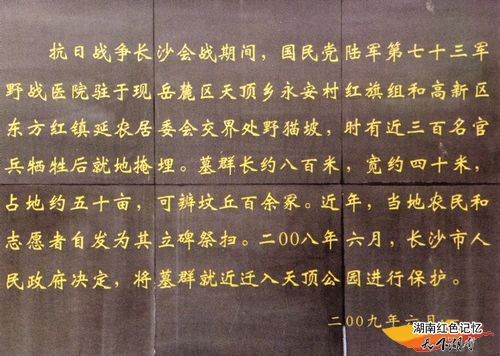 抗日战争长沙会战期间，国民党陆军第七十三军
野战医院驻于现岳麓区天顶乡永安村红旗组和高新区
东方红镇延农居委会交界处野猫坡，时有近三百名官
兵牺牲后就地掩埋。墓群长约八百米，宽约四十米，
占地约五十亩，可辨坟丘百余冢。近年，当地农民和
志愿者自发为其立碑祭扫。二00八年六月，长沙市人
民政府决定，将墓群就近迁入天顶公园进行保护。
二00九年六月
湖南红色记忆